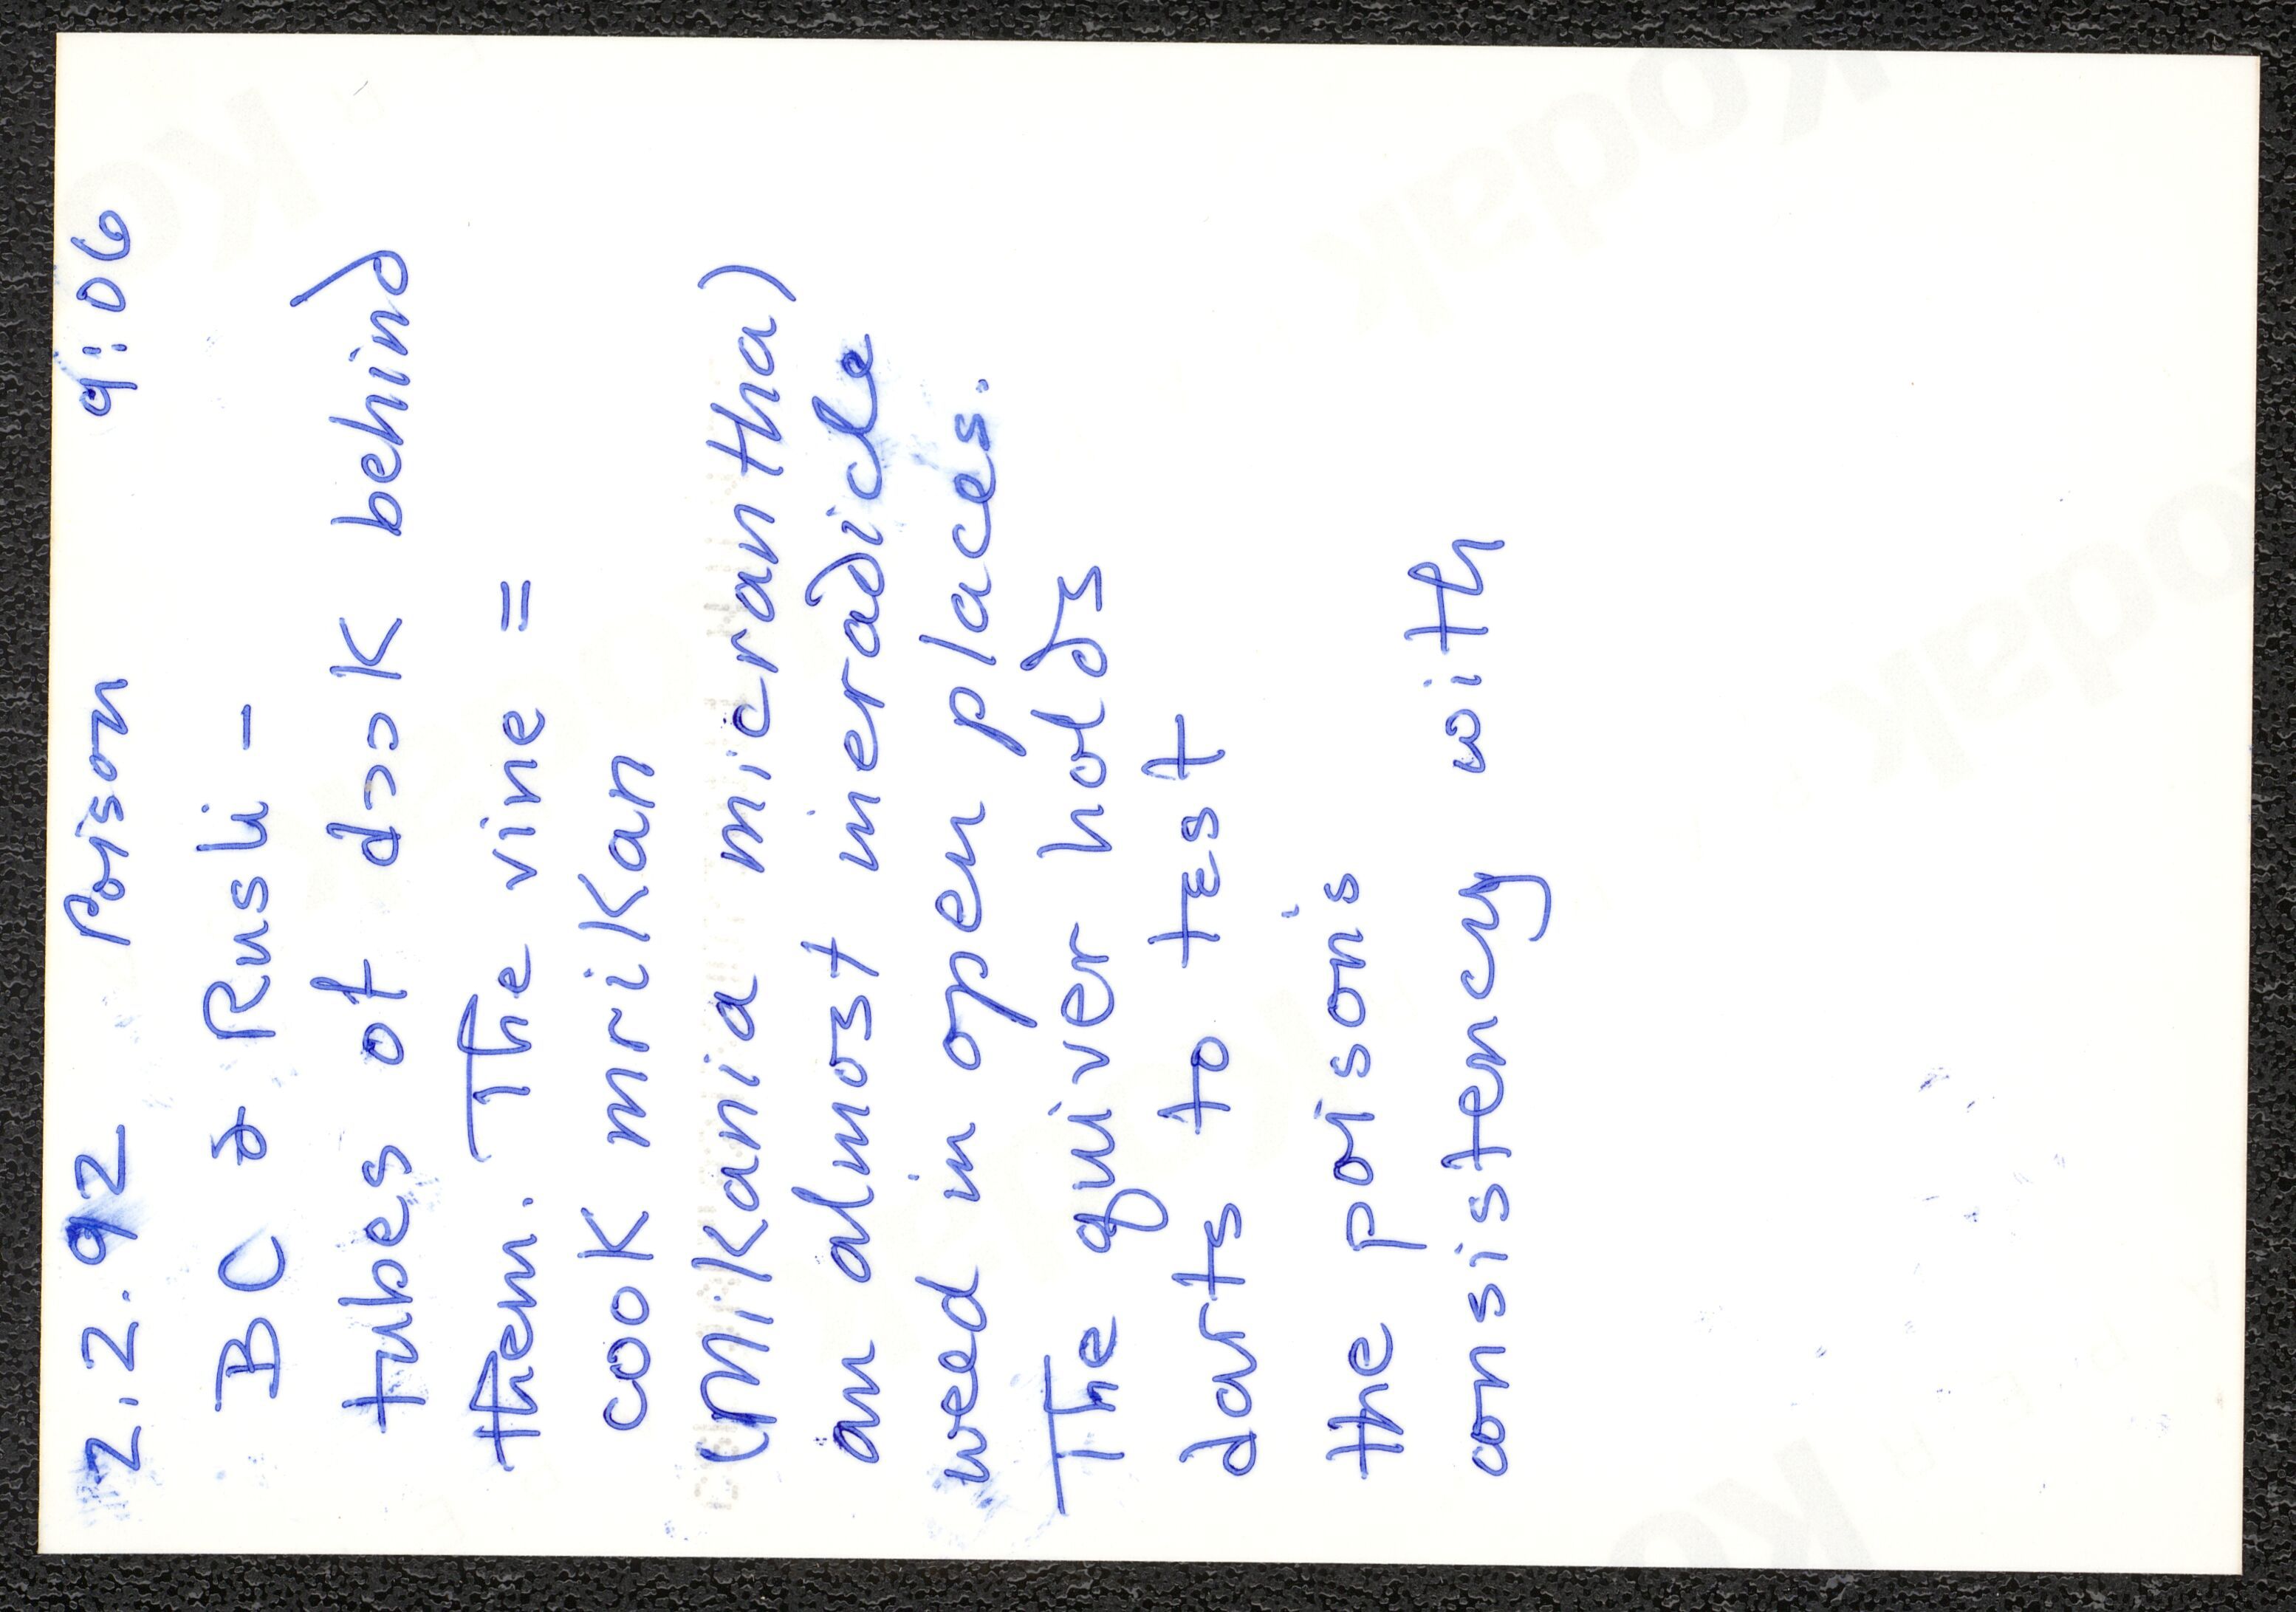 2.2.92 Poison 9:06
BC & Rusli -
tubes of dook behind
them. The vine =
cook mrikan
(Mikania micrantha)
an almost ineradicle
weed in open places.
The quiver holds
darts to test
the poison's
consistency with
Kodak
Kodak